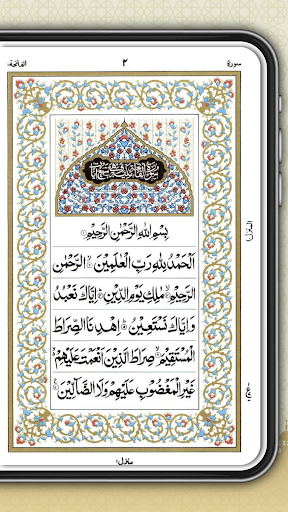 سورة ٢ الفاتحة
سُوْرَةُ الْفَاتِحَةِ
بِسْمِ اللهِ الرَّحْمٰنِ الرَّحِيْمِ
اَلْحَمْدُ لِلّٰهِ رَبِّ الْعٰلَمِيْنَ الرَّحْمٰنِ
الرَّحِيْمِ مٰلِكِ يَوْمِ الدِّيْنِ اِيَّاكَ نَعْبُدُ
وَاِيَّاكَ نَسْتَعِيْنُ اِهْدِنَا الصِّرَاطَ
الْمُسْتَقِيْمَ صِرَاطَ الَّذِيْنَ اَنْعَمْتَ عَلَيْهِمْ
غَيْرِ الْمَغْضُوْبِ عَلَيْهِمْ وَلَا الضَّآلِّيْنَ